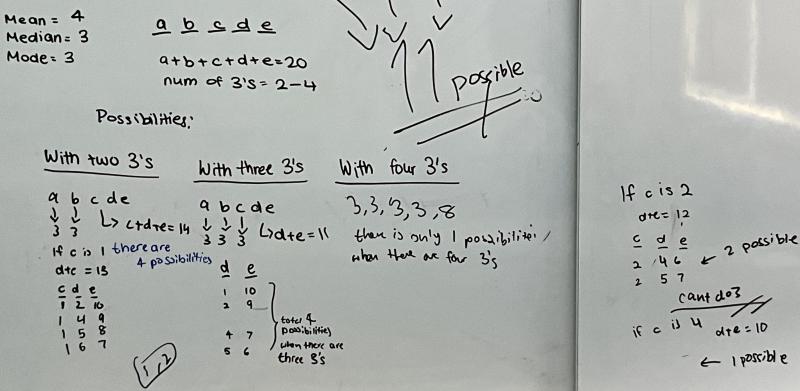 Mean = 4
Median = 3
Mode = 3
a b c d e
a+b+c+d+e=20
num of 3's = 2-4
possible
Possibilities:
With two 3's
a b c d e
3 3
c+d+e=14
If c is 1 there are
4 possibilities
d+e = 13
c d e
1 2 10
1 4 9
1 5 8
1 6 7
1,2
With three 3's
a b c d e
3 3 3
d+e=11
d e
1 10
2 9
4 7
5 6
total 4
possibilities
when there are
three 3's
With four 3's
3,3,3,3,8
there is only 1
when there are four 3's
If c is 2
d+e = 12
c d e
2 4 6 ← 2 possible
2 5 7
cant do 3
if c is 4 d+e = 10
← 1 possible